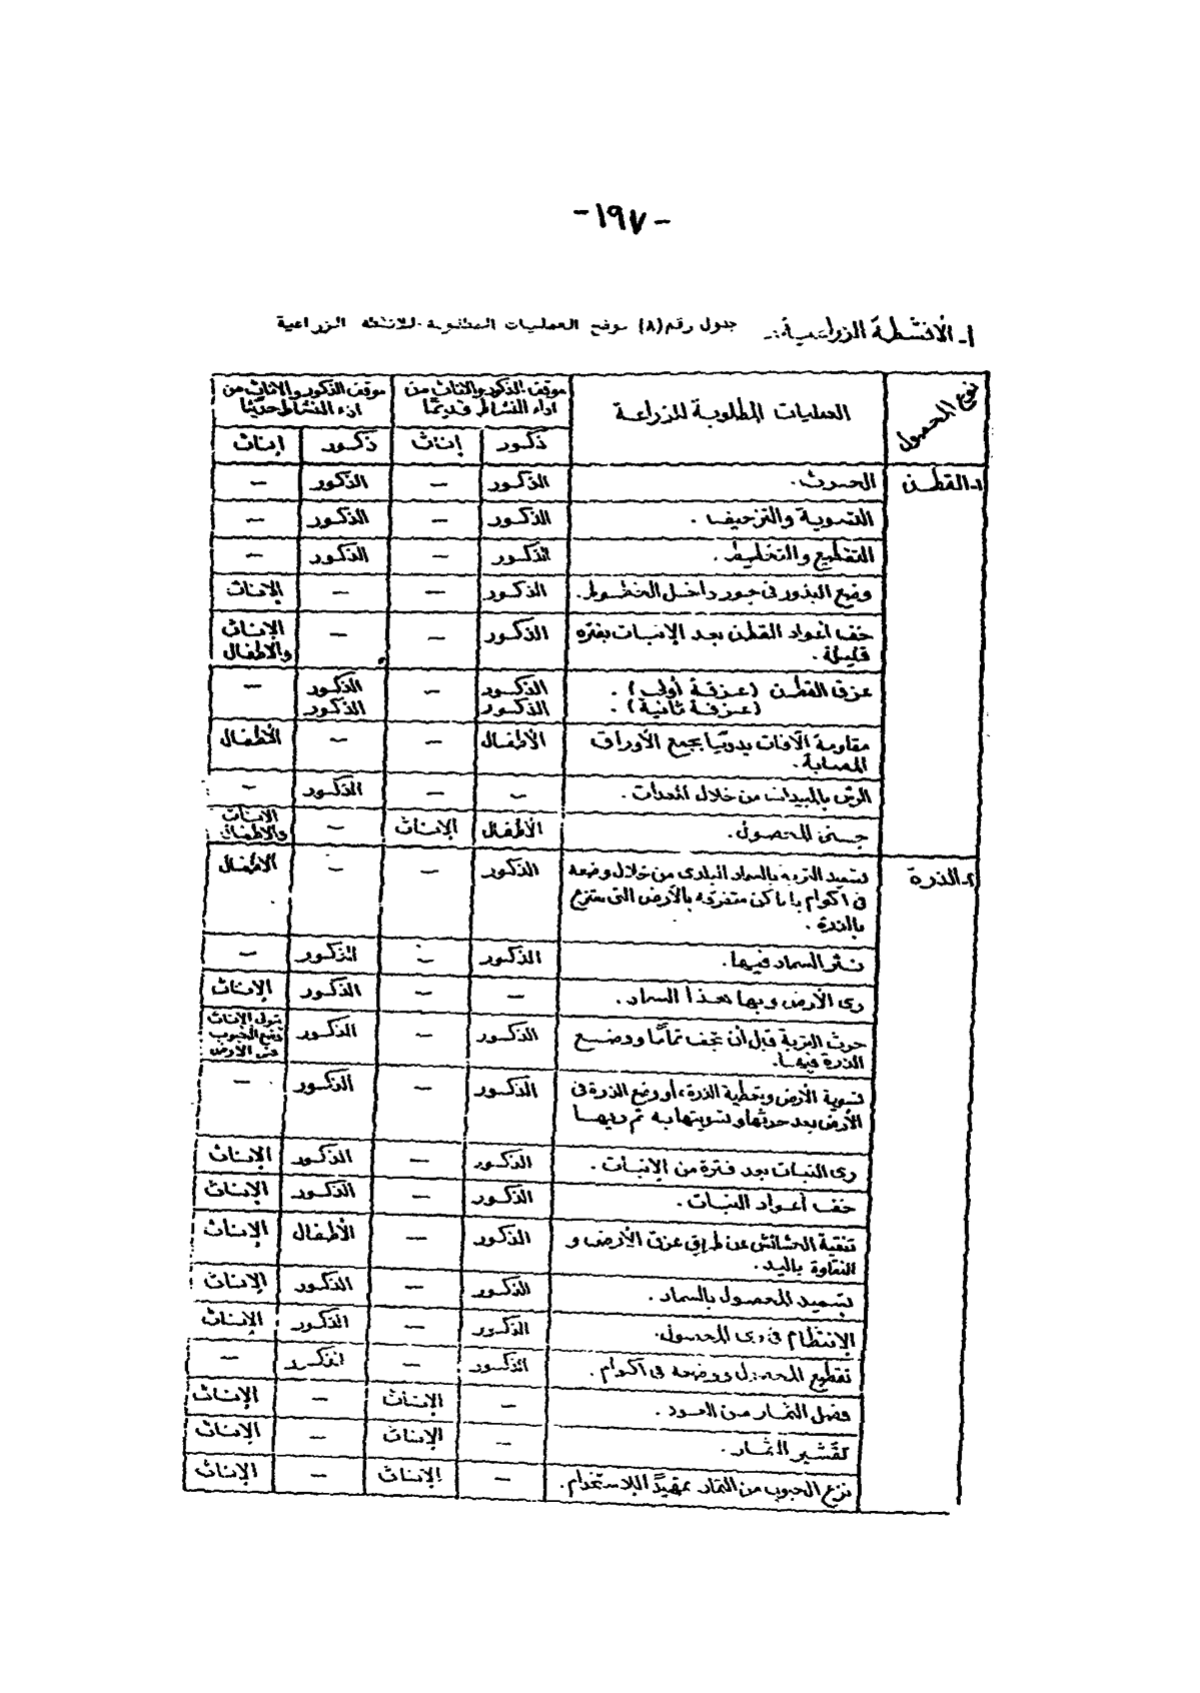 -١٩٧-
أ- الأنشطة الزراعية:- جدول رقم (٨) يوضح العمليات المطلوبة للأنشطة الزراعية
نوع المحصول | العمليات المطلوبة للزراعة | موقف الذكور والاناث من أداء النشاط قديمًا | موقف الذكور والاناث من أداء النشاط حديثًا
ذكور | إناث | ذكور | إناث
١- القطن | الحرث. | الذكور | — | الذكور | —
التسوية والتزحيف. | الذكور | — | الذكور | —
التقطيع والتخطيط. | الذكور | — | الذكور | —
وضع البذور فى جور داخل الخطوط. | الذكور | — | — | الإناث
خف أعواد القطن بعد الإنبات بفتره | الذكور | — | — | الإناث
قليلة. | والاطفال
عزق القطن (عزقة أولى). | الذكور | — | الذكور | —
(عزقة ثانية). | الذكور | الذكور
مقاومة الآفات يدويًا بجمع الأوراق | الأطفال | — | — | الأطفال
المصابة.
الرش بالمبيدات من خلال المعدات. | — | — | الذكور | —
جنى المحصول. | الأطفال | الإناث | — | الإناث
والاطفال
٢- الذرة | تسميد التربه بالسماد البلدى من خلال وضعه | الذكور | — | — | الأطفال
فى أكوام بأماكن متفرقه بالأرض التى ستزرع
بالذرة.
نثر السماد فيها. | الذكور | — | الذكور | —
رى الأرض وبها هذا السماد. | — | — | الذكور | الإناث
حرث التربة قبل أن تجف تمامًا ووضع | الذكور | — | الذكور | يتولى الإناث
الذرة فيها. | وضع الحبوب
فى الأرض
تسوية الأرض وتغطية الذرة، أو وضع الذرة فى | الذكور | — | الذكور | —
الأرض بعد حرثها وتسويتها به ثم ريها
رى النبات بعد فترة من الإنبات. | الذكور | — | الذكور | الإناث
خف أعواد النبات. | الذكور | — | الذكور | الإناث
تنقية الحشائش عن طريق عزق الأرض و | الذكور | — | الأطفال | الإناث
النقاوة باليد.
تسميد المحصول بالسماد. | الذكور | — | الذكور | الإناث
الإنتظام فى رى المحصول. | الذكور | — | الذكور | الإناث
تقطيع المحصول ووضعه فى أكوام. | الذكور | — | الذكور | —
فصل الثمار من العود. | — | الإناث | — | الإناث
تقشير الثمار. | — | الإناث | — | الإناث
نزع الحبوب من الثمار تمهيدًا للاستخدام. | — | الإناث | — | الإناث